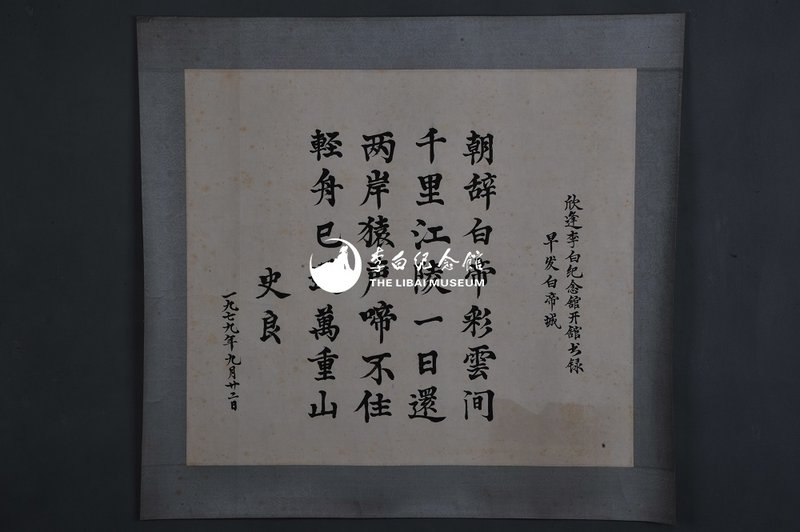 欣逢李白纪念馆开馆书录
早发白帝城
朝辞白帝彩雲间
千里江陵一日還
两岸猿声啼不住
軽舟已过萬重山
史良
一九七九年九月廿二日
李白纪念馆
THE LIBAI MUSEUM